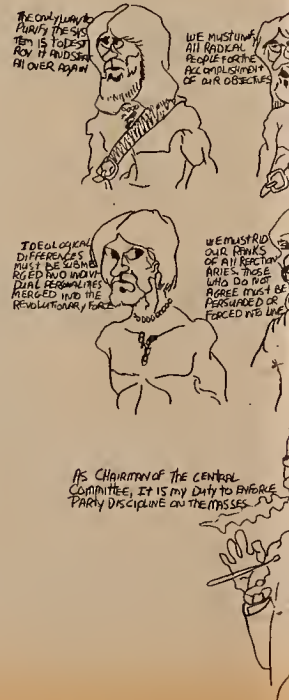 THE ONLY WAY TO
PURIFY THE SYS
TEM IS TO DEST
ROY IT AND START
All OVER AGAIN
WE MUST UNIFY
All RADICAL
PEOPLE FOR THE
ACCOMPLISHMENT
OF OUR OBJECTIVES
IDEOLOGICAL
DIFFERENCES
MUST BE SUBME
RGED AND INDIVI
DUAL PERSONALITIES
MERGED INTO THE
REVOLUTIONARY FORCE
WE MUST RID
OUR RANKS
OF All REACTION
ARIES. THOSE
WHO DO NOT
AGREE MUST BE
PERSUADED OR
FORCED INTO LINE
AS CHAIRMAN OF THE CENTRAL
COMMITTEE, IT IS MY DUTY TO ENFORCE
PARTY DISCIPLINE ON THE MASSES